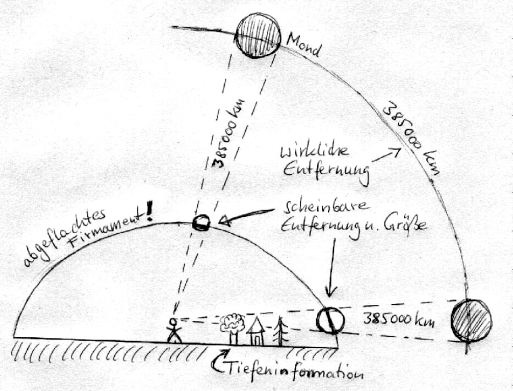 Mond
385000 km
385000 km
wirkliche
Entfernung
scheinbare
Entfernung u. Größe
abgeflachtes
Firmament!
385000 km
Tiefeninformation